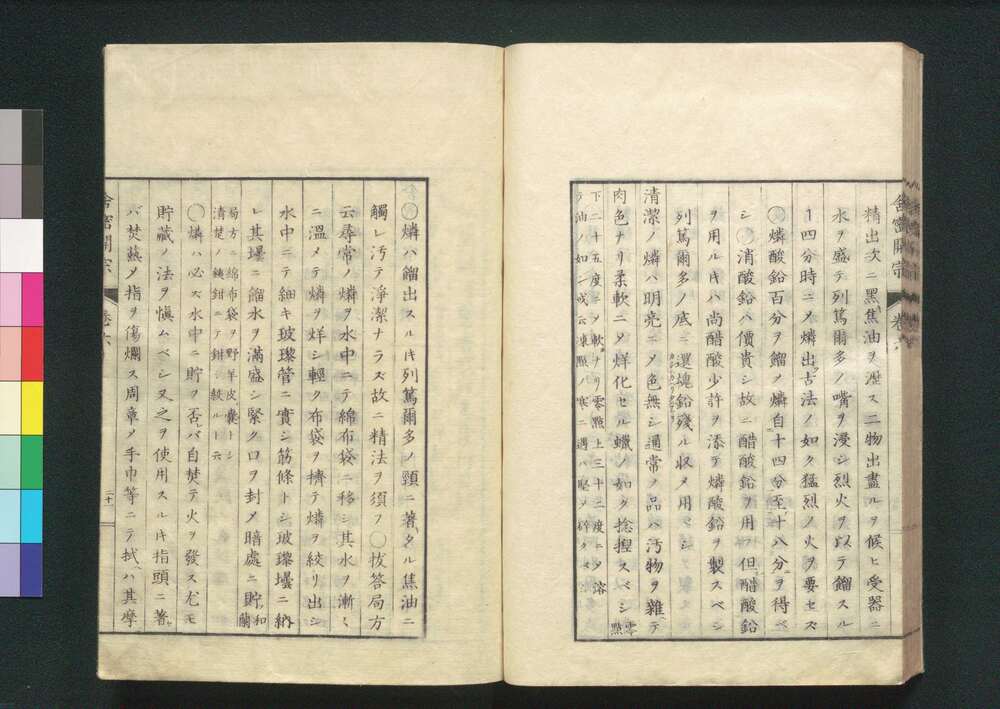 舎密開宗 卷六
精出次ニ黑焦油ヲ洩ス二物出盡ルヲ候ヒ受器ニ
水ヲ盛テ列篤爾多ノ嘴ヲ浸シ烈火ヲ以テ餾スル
一四分時ニメ燐出古法ノ如ク猛烈ノ火ヲ要セズ
◯燐酸鉛百分ヲ餾メ燐自十四分至十八分ヲ得ベ
シ◯消酸鉛ハ價貴シ故ニ醋酸鉛ヲ用フ但醋酸鉛
ヲ用ルキハ尚醋酸少許ヲ添テ燐酸鉛ヲ製スベシ
列篤爾多ノ底ニ還塊鉛殘ル収メ用ベシ
清潔ノ燐ハ明亮ニメ色無シ通常ノ品ハ汚物ヲ雜テ
肉色ナリ柔軟ニメ烊化セル蠟ノ如ク捻揑スベシ 零點
下二十五度ニメ軟ナリ零點上三十二度ニメ溶
テ油ノ如シ或云凍點ノ寒ニ遇ハ堅メ碎クベシ
◯燐ハ餾出スルキ列篤爾多ノ頸ニ著タル焦油ニ
觸レ汚テ淨潔ナラズ故ニ精法ヲ須フ◯拔答局方
云尋常ノ燐ヲ水中ニテ綿布袋ニ移シ其水ヲ漸く
ニ溫メテ燐ヲ烊シ輕ク布袋ヲ擠テ燐ヲ絞リ出シ
水中ニテ細キ玻璨管ニ實シ筋條トシ玻璨壜ニ納
レ其壜ニ餾水ヲ滿盛シ緊ク口ヲ封メ暗處ニ貯 和蘭
局方ニ綿布袋ヲ野羊皮囊トシ
清楚ノ鋏鉗ニテ鉗シ絞ルト云
◯燐ハ必ズ水中ニ貯フ否バ自焚テ火ヲ發ス尤モ
貯藏ノ法ヲ愼ムベシ又之ヲ使用スルキ指頭ニ著
バ焚爇メ指ヲ傷爛ス周章メ手巾等ニテ拭ハ其摩
舎密開宗 卷六
二十